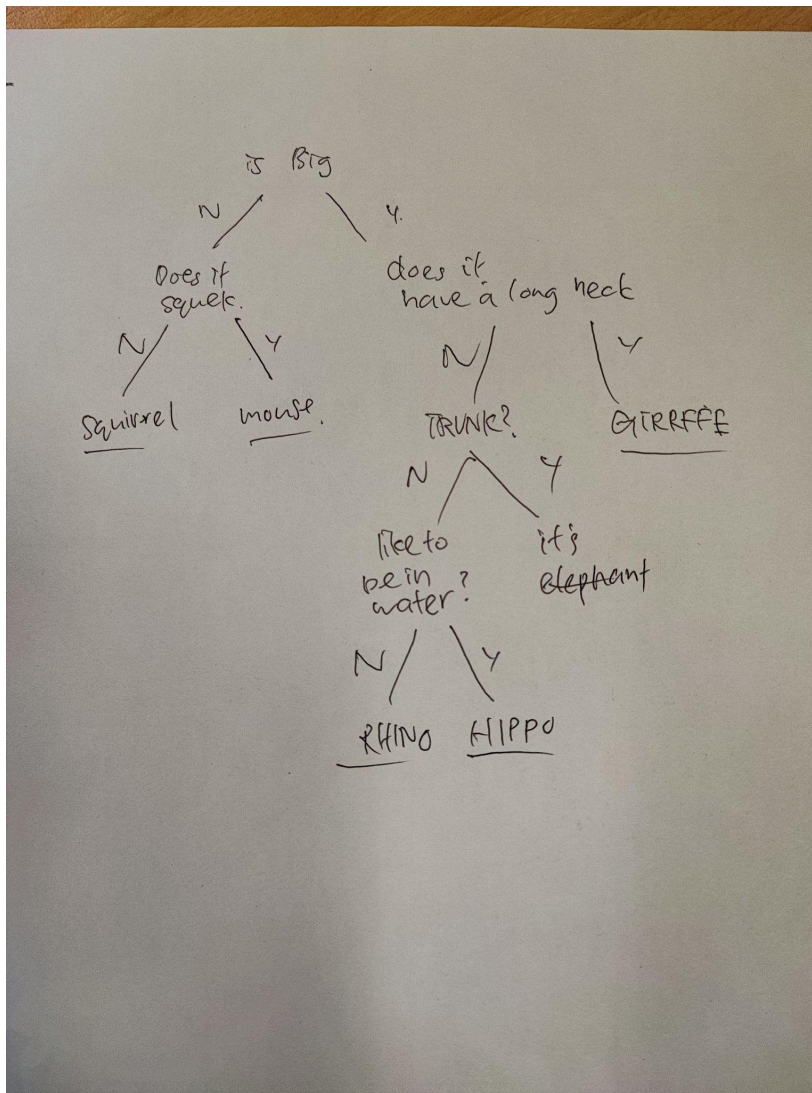 is Big
N
Y.
Does it
squek.
does it
have a long neck
N
Y
N
Y
squirrel
mouse.
TRUNK?
GIRRFFE
N
Y
like to
be in
water?
it's
elephant
N
Y
RHINO
HIPPO